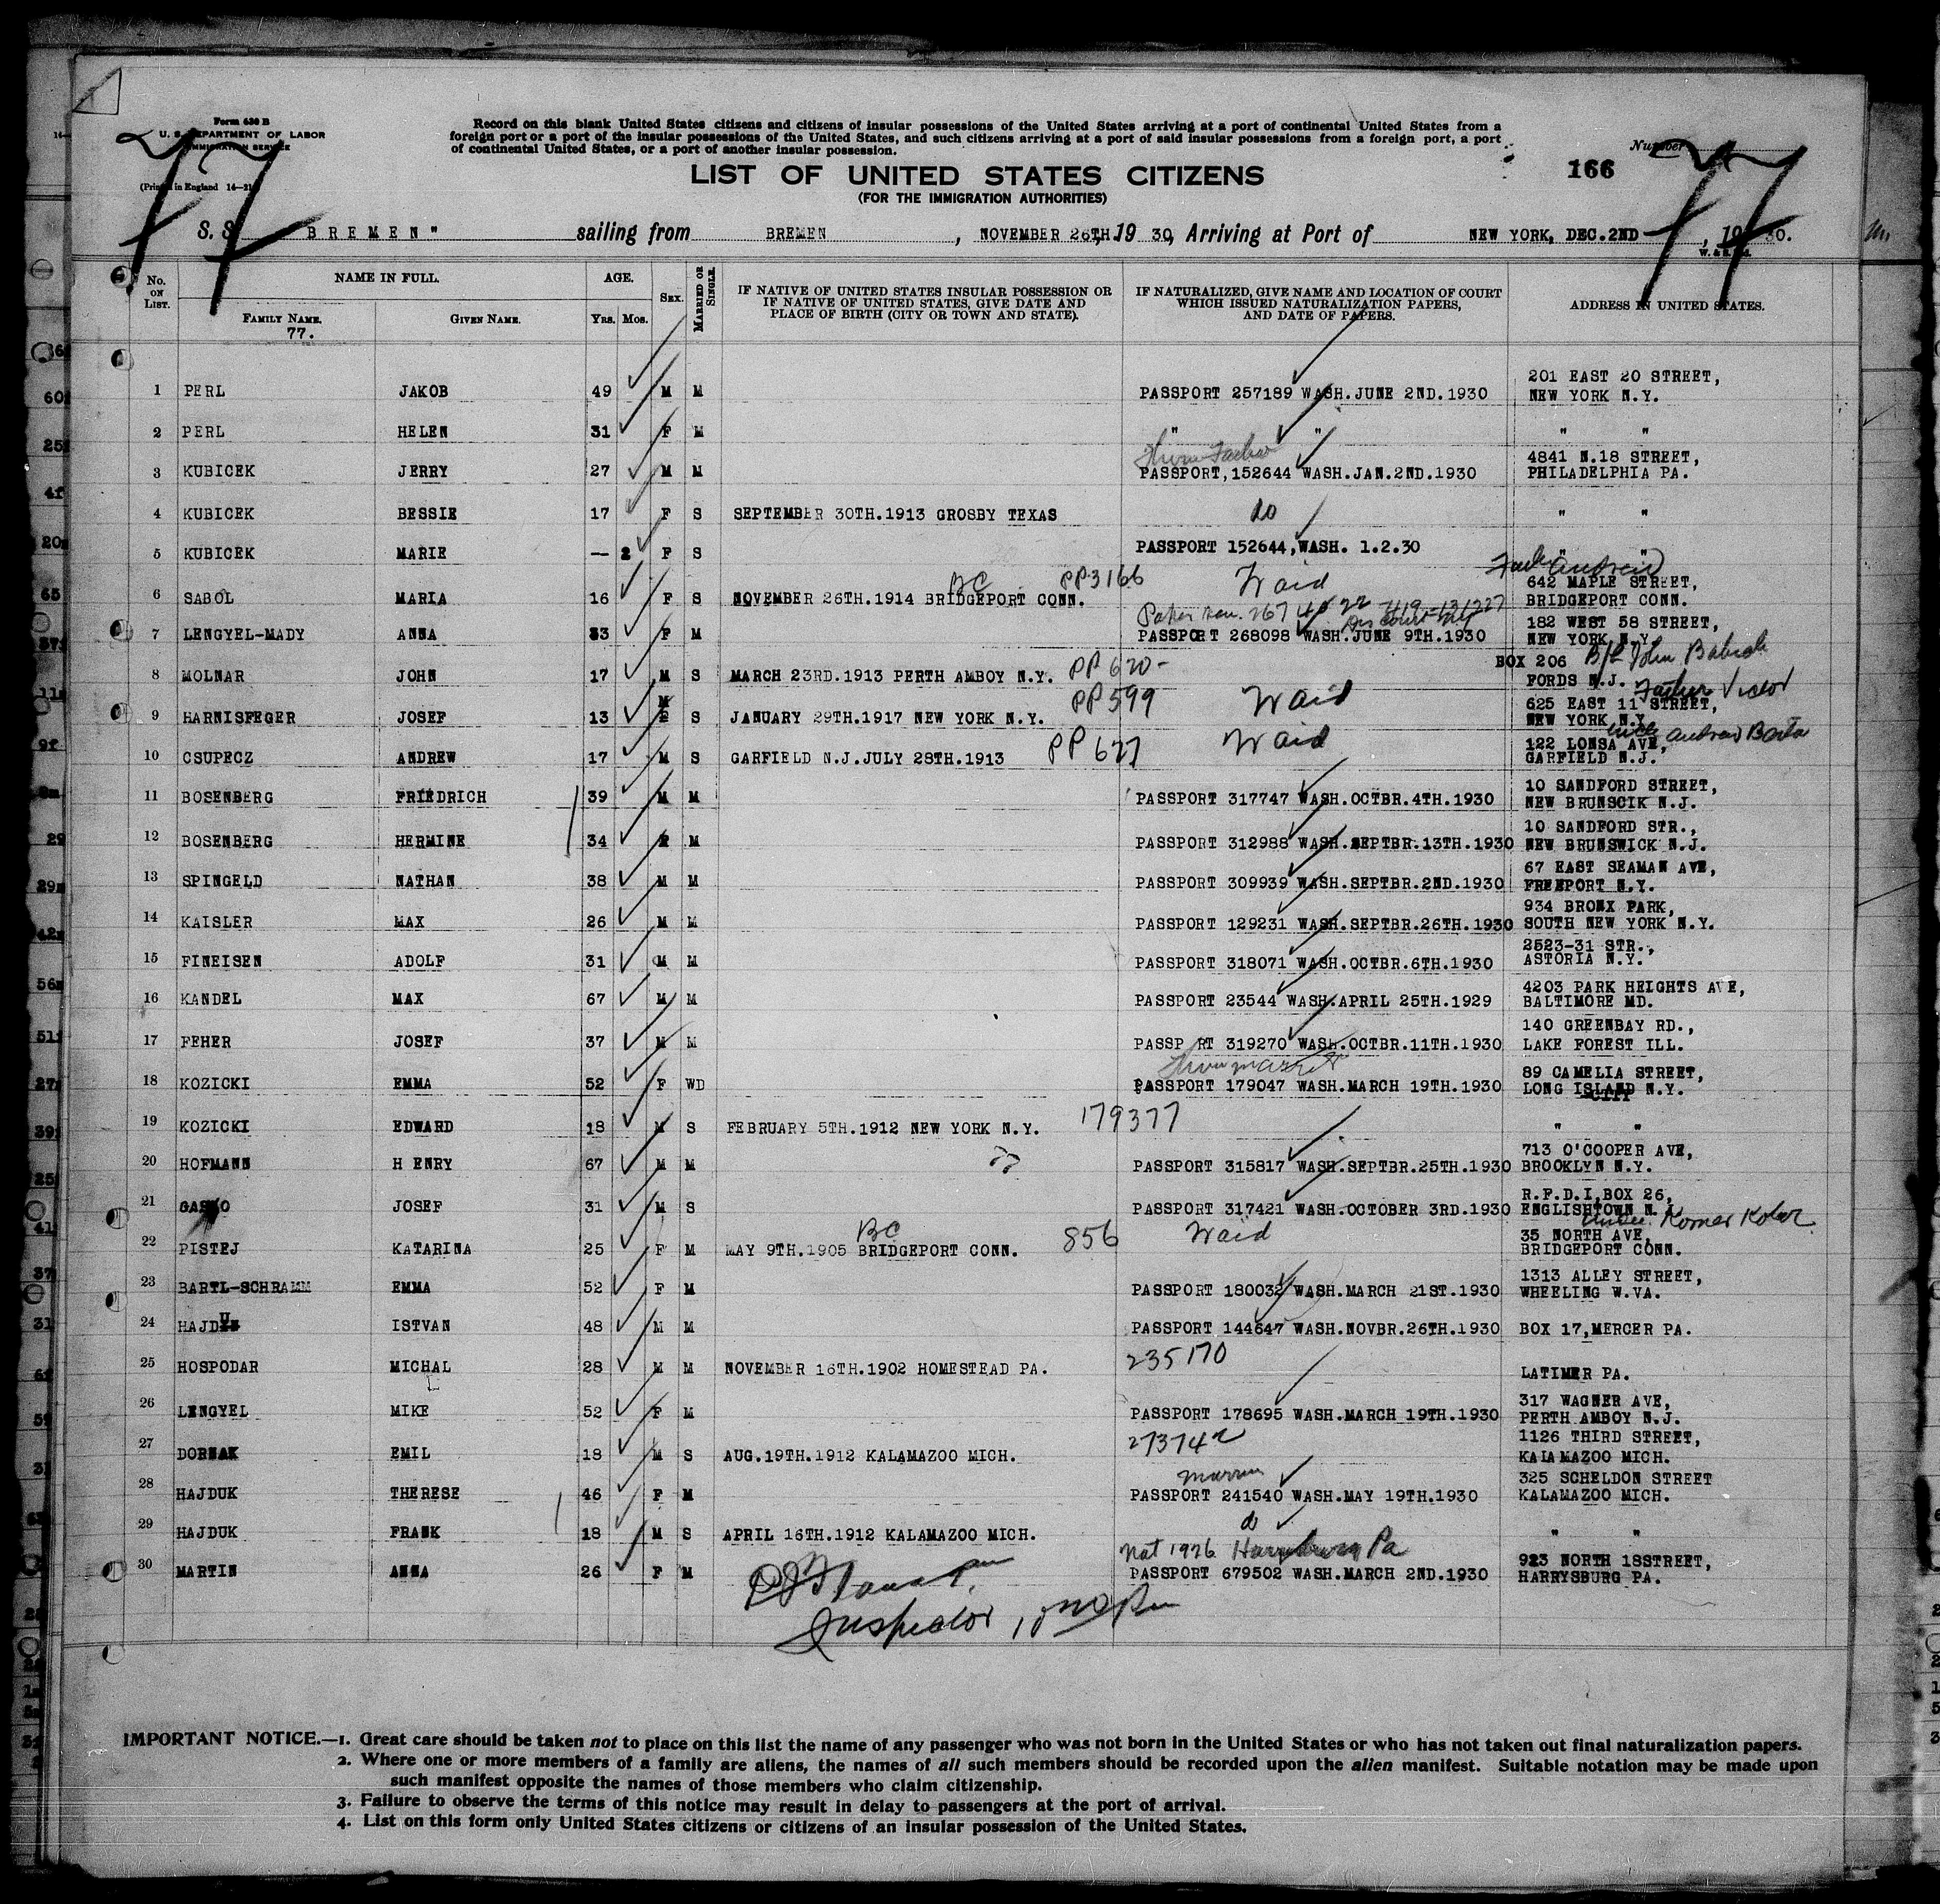 Form 630 B
U. S. DEPARTMENT OF LABOR
IMMIGRATION SERVICE
(Printed in England 14—21)
77
77
Record on this blank United States citizens and citizens of insular possessions of the United States arriving at a port of continental United States from a
foreign port or a port of the insular possessions of the United States, and such citizens arriving at a port of said insular possessions from a foreign port, a port
of continental United States, or a port of another insular possession.
Number
166
LIST OF UNITED STATES CITIZENS
(FOR THE IMMIGRATION AUTHORITIES)
S. S. BREMEN" sailing from BREMEN, NOVEMBER 26TH. 19 30, Arriving at Port of NEW YORK, DEC.2ND, 19 30.
No. ON LIST. NAME IN FULL. AGE. SEX. MARRIED OR SINGLE. IF NATIVE OF UNITED STATES INSULAR POSSESSION OR IF NATIVE OF UNITED STATES, GIVE DATE AND PLACE OF BIRTH (CITY OR TOWN AND STATE). IF NATURALIZED, GIVE NAME AND LOCATION OF COURT WHICH ISSUED NATURALIZATION PAPERS, AND DATE OF PAPERS. ADDRESS IN UNITED STATES.
FAMILY NAME. GIVEN NAME. YRS. MOS.
77.
1 PERL JAKOB 49 M M PASSPORT 257189 WASH.JUNE 2ND.1930 201 EAST 20 STREET, NEW YORK N.Y.
2 PERL HELEN 31 F M " " " "
3 KUBICEK JERRY 27 M M PASSPORT,152644 WASH.JAN.2ND.1930 4841 N.18 STREET, PHILADELPHIA PA.
4 KUBICEK BESSIE 17 F S SEPTEMBER 30TH.1913 GROSBY TEXAS do " "
5 KUBICEK MARIE — 2 F S PASSPORT 152644,WASH. 1.2.30 " "
6 SABOL MARIA 16 F S NOVEMBER 26TH.1914 BRIDGEPORT CONN. BC PP3166 Waid 642 MAPLE STREET, BRIDGEPORT CONN.
7 LENGYEL-MADY ANNA 33 F M PASSPORT 268098 WASH.JUNE 9TH.1930 182 WEST 58 STREET, NEW YORK N.Y.
8 MOLNAR JOHN 17 M S MARCH 23RD.1913 PERTH AMBOY N.Y. PP 620- BOX 206 FORDS N.J.
9 HARNISFEGER JOSEF 13 M S JANUARY 29TH.1917 NEW YORK N.Y. PP599 Waid Father Victor 625 EAST 11 STREET, NEW YORK N.Y.
10 CSUPECZ ANDREW 17 M S GARFIELD N.J.JULY 28TH.1913 PP 627 Waid 122 LONSA AVE, GARFIELD N.J.
11 BOSENBERG FRIEDRICH 39 M M PASSPORT 317747 WASH.OCTBR.4TH.1930 10 SANDFORD STREET, NEW BRUNSCIK N.J.
12 BOSENBERG HERMINE 34 F M PASSPORT 312988 WASH.SEPTBR.13TH.1930 10 SANDFORD STR., NEW BRUNSWICK N.J.
13 SPINGELD NATHAN 38 M M PASSPORT 309939 WASH.SEPTBR.2ND.1930 67 EAST SEAMAN AVE, FREEPORT N.Y.
14 KAISLER MAX 26 M M PASSPORT 129231 WASH.SEPTBR.26TH.1930 934 BRONX PARK, SOUTH NEW YORK N.Y.
15 FINEISEN ADOLF 31 M M PASSPORT 318071 WASH.OCTBR.6TH.1930 2523-31 STR., ASTORIA N.Y.
16 KANDEL MAX 67 M M PASSPORT 23544 WASH.APRIL 25TH.1929 4203 PARK HEIGHTS AVE, BALTIMORE MD.
17 FEHER JOSEF 37 M M PASSP RT 319270 WASH.OCTBR.11TH.1930 140 GREENBAY RD., LAKE FOREST ILL.
18 KOZICKI EMMA 52 F WD PASSPORT 179047 WASH.MARCH 19TH.1930 89 CAMELIA STREET, LONG ISLAND N.Y. CITY
19 KOZICKI EDWARD 18 M S FEBRUARY 5TH.1912 NEW YORK N.Y. 179377 " "
20 HOFMANN H ENRY 67 M M PASSPORT 315817 WASH.SEPTBR.25TH.1930 713 O'COOPER AVE, BROOKLYN N.Y.
21 JOSEF 31 M S PASSPORT 317421 WASH.OCTOBER 3RD.1930 R.F.D.I,BOX 26, ENGLISHTOWN N.J.
22 PISTEJ KATARINA 25 F M MAY 9TH.1905 BRIDGEPORT CONN. BC 856 Waid 35 NORTH AVE, BRIDGEPORT CONN.
23 BARTL-SCHRAMM EMMA 52 F M PASSPORT 180032 WASH.MARCH 21ST.1930 1313 ALLEY STREET, WHEELING W.VA.
24 HAJDU ISTVAN 48 M M PASSPORT 144647 WASH.NOVBR.26TH.1930 BOX 17,MERCER PA.
25 HOSPODAR MICHAL 28 M M NOVEMBER 16TH.1902 HOMESTEAD PA. 235170 LATIMER PA.
26 LENGYEL MIKE 52 F M PASSPORT 178695 WASH.MARCH 19TH.1930 317 WAGNER AVE, PERTH AMBOY N.J.
27 DORNAK EMIL 18 M S AUG.19TH.1912 KALAMAZOO MICH. 273742 1126 THIRD STREET, KALAMAZOO MICH.
28 HAJDUK THERESE 46 F M PASSPORT 241540 WASH.MAY 19TH.1930 325 SCHELDON STREET KALAMAZOO MICH.
29 HAJDUK FRANK 18 M S APRIL 16TH.1912 KALAMAZOO MICH. do " "
30 MARTIN ANNA 26 F M Nat 1926 Harrisburg Pa PASSPORT 679502 WASH.MARCH 2ND.1930 923 NORTH 18STREET, HARRYSBURG PA.
Inspector
IMPORTANT NOTICE.—1. Great care should be taken not to place on this list the name of any passenger who was not born in the United States or who has not taken out final naturalization papers.
2. Where one or more members of a family are aliens, the names of all such members should be recorded upon the alien manifest. Suitable notation may be made upon
such manifest opposite the names of those members who claim citizenship.
3. Failure to observe the terms of this notice may result in delay to passengers at the port of arrival.
4. List on this form only United States citizens or citizens of an insular possession of the United States.